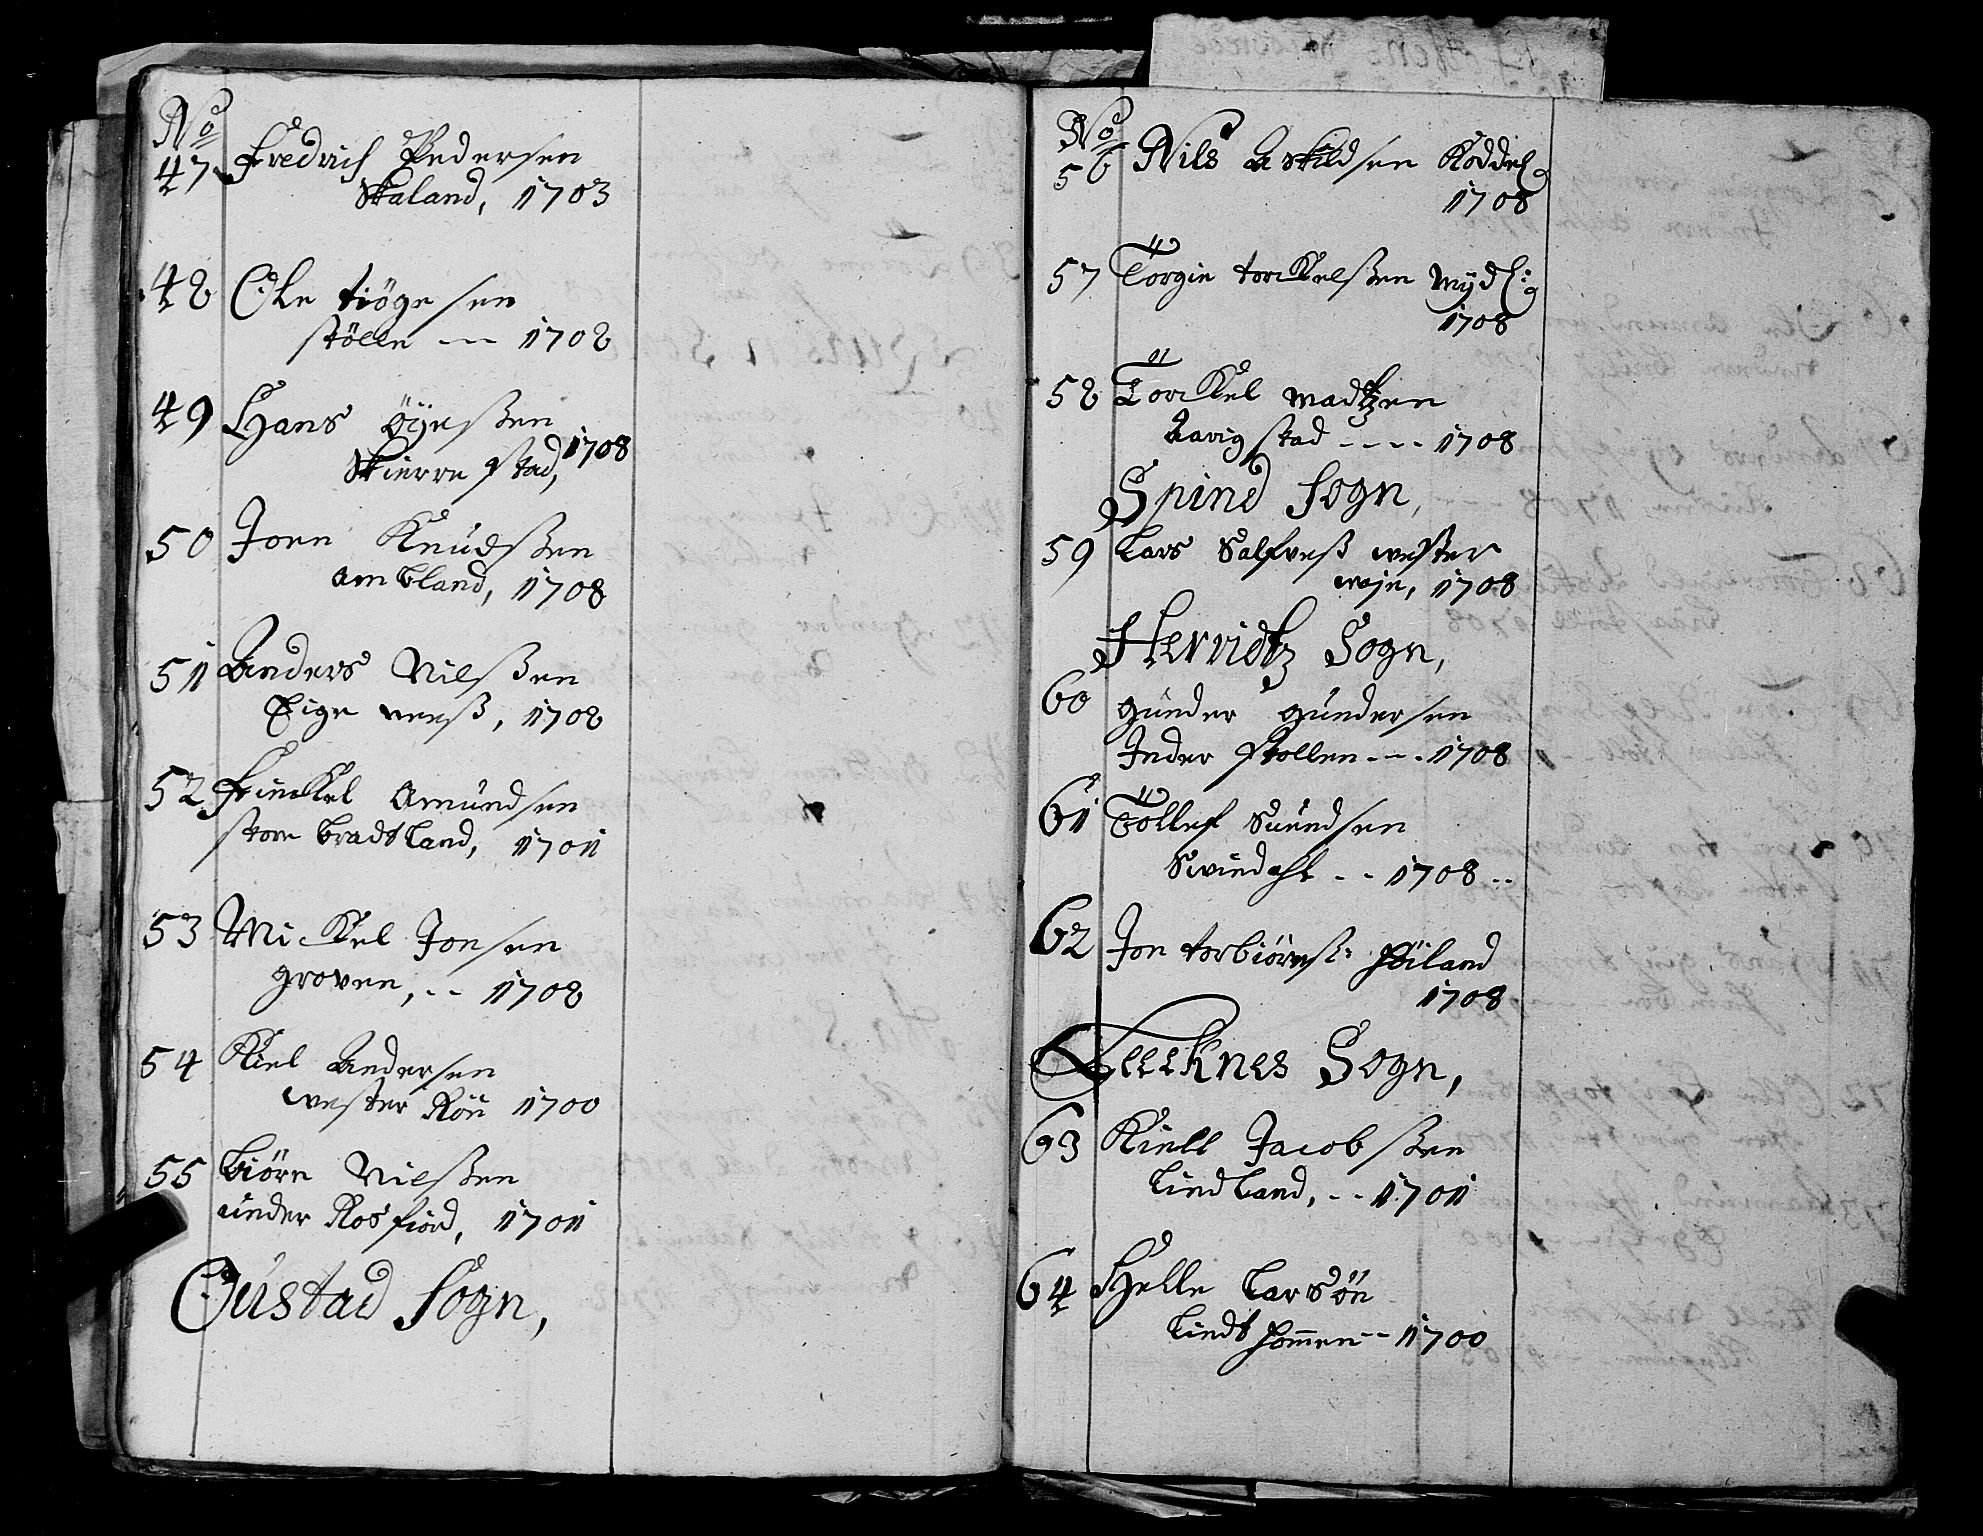 No
47 Fredrich Pedersen
Skaland, 1703
48 Ole tiögesen
stölle --- 1708
49 Hans öÿeßen
Skierrestad, 1708
50 Joen Knudßen
Ambland, 1708
51 Anders Nilßen
Eige neeß, 1708
52 Amundsen
store bradtland, 1701
53 Mickel Jonsen
groven, -- 1708
54 Kiel Andersen
wester Röu 1700
55 Biörn Nilßen
under Rosfiord, 1701
Oustad Sogn,
No
56 Nils Askildsen
1708
57 Törgie torckelßen
1708
58 Törckel madtzen
Aavigstad ---- 1708
Spind Sogn,
59 Lars Salfveß wester
wåje, 1708
Herridtz Sogn,
60 gunder gundersen
Inder stollen --- 1708
61 Töllef Suendsen
Swindahl -- 1708 --
62 Jon torbiörnß: Höiland
1708
Feedknes Sogn,
63 Kiell Jacobßen
Lindland, -- 1701
64 Helle Larsön
1700